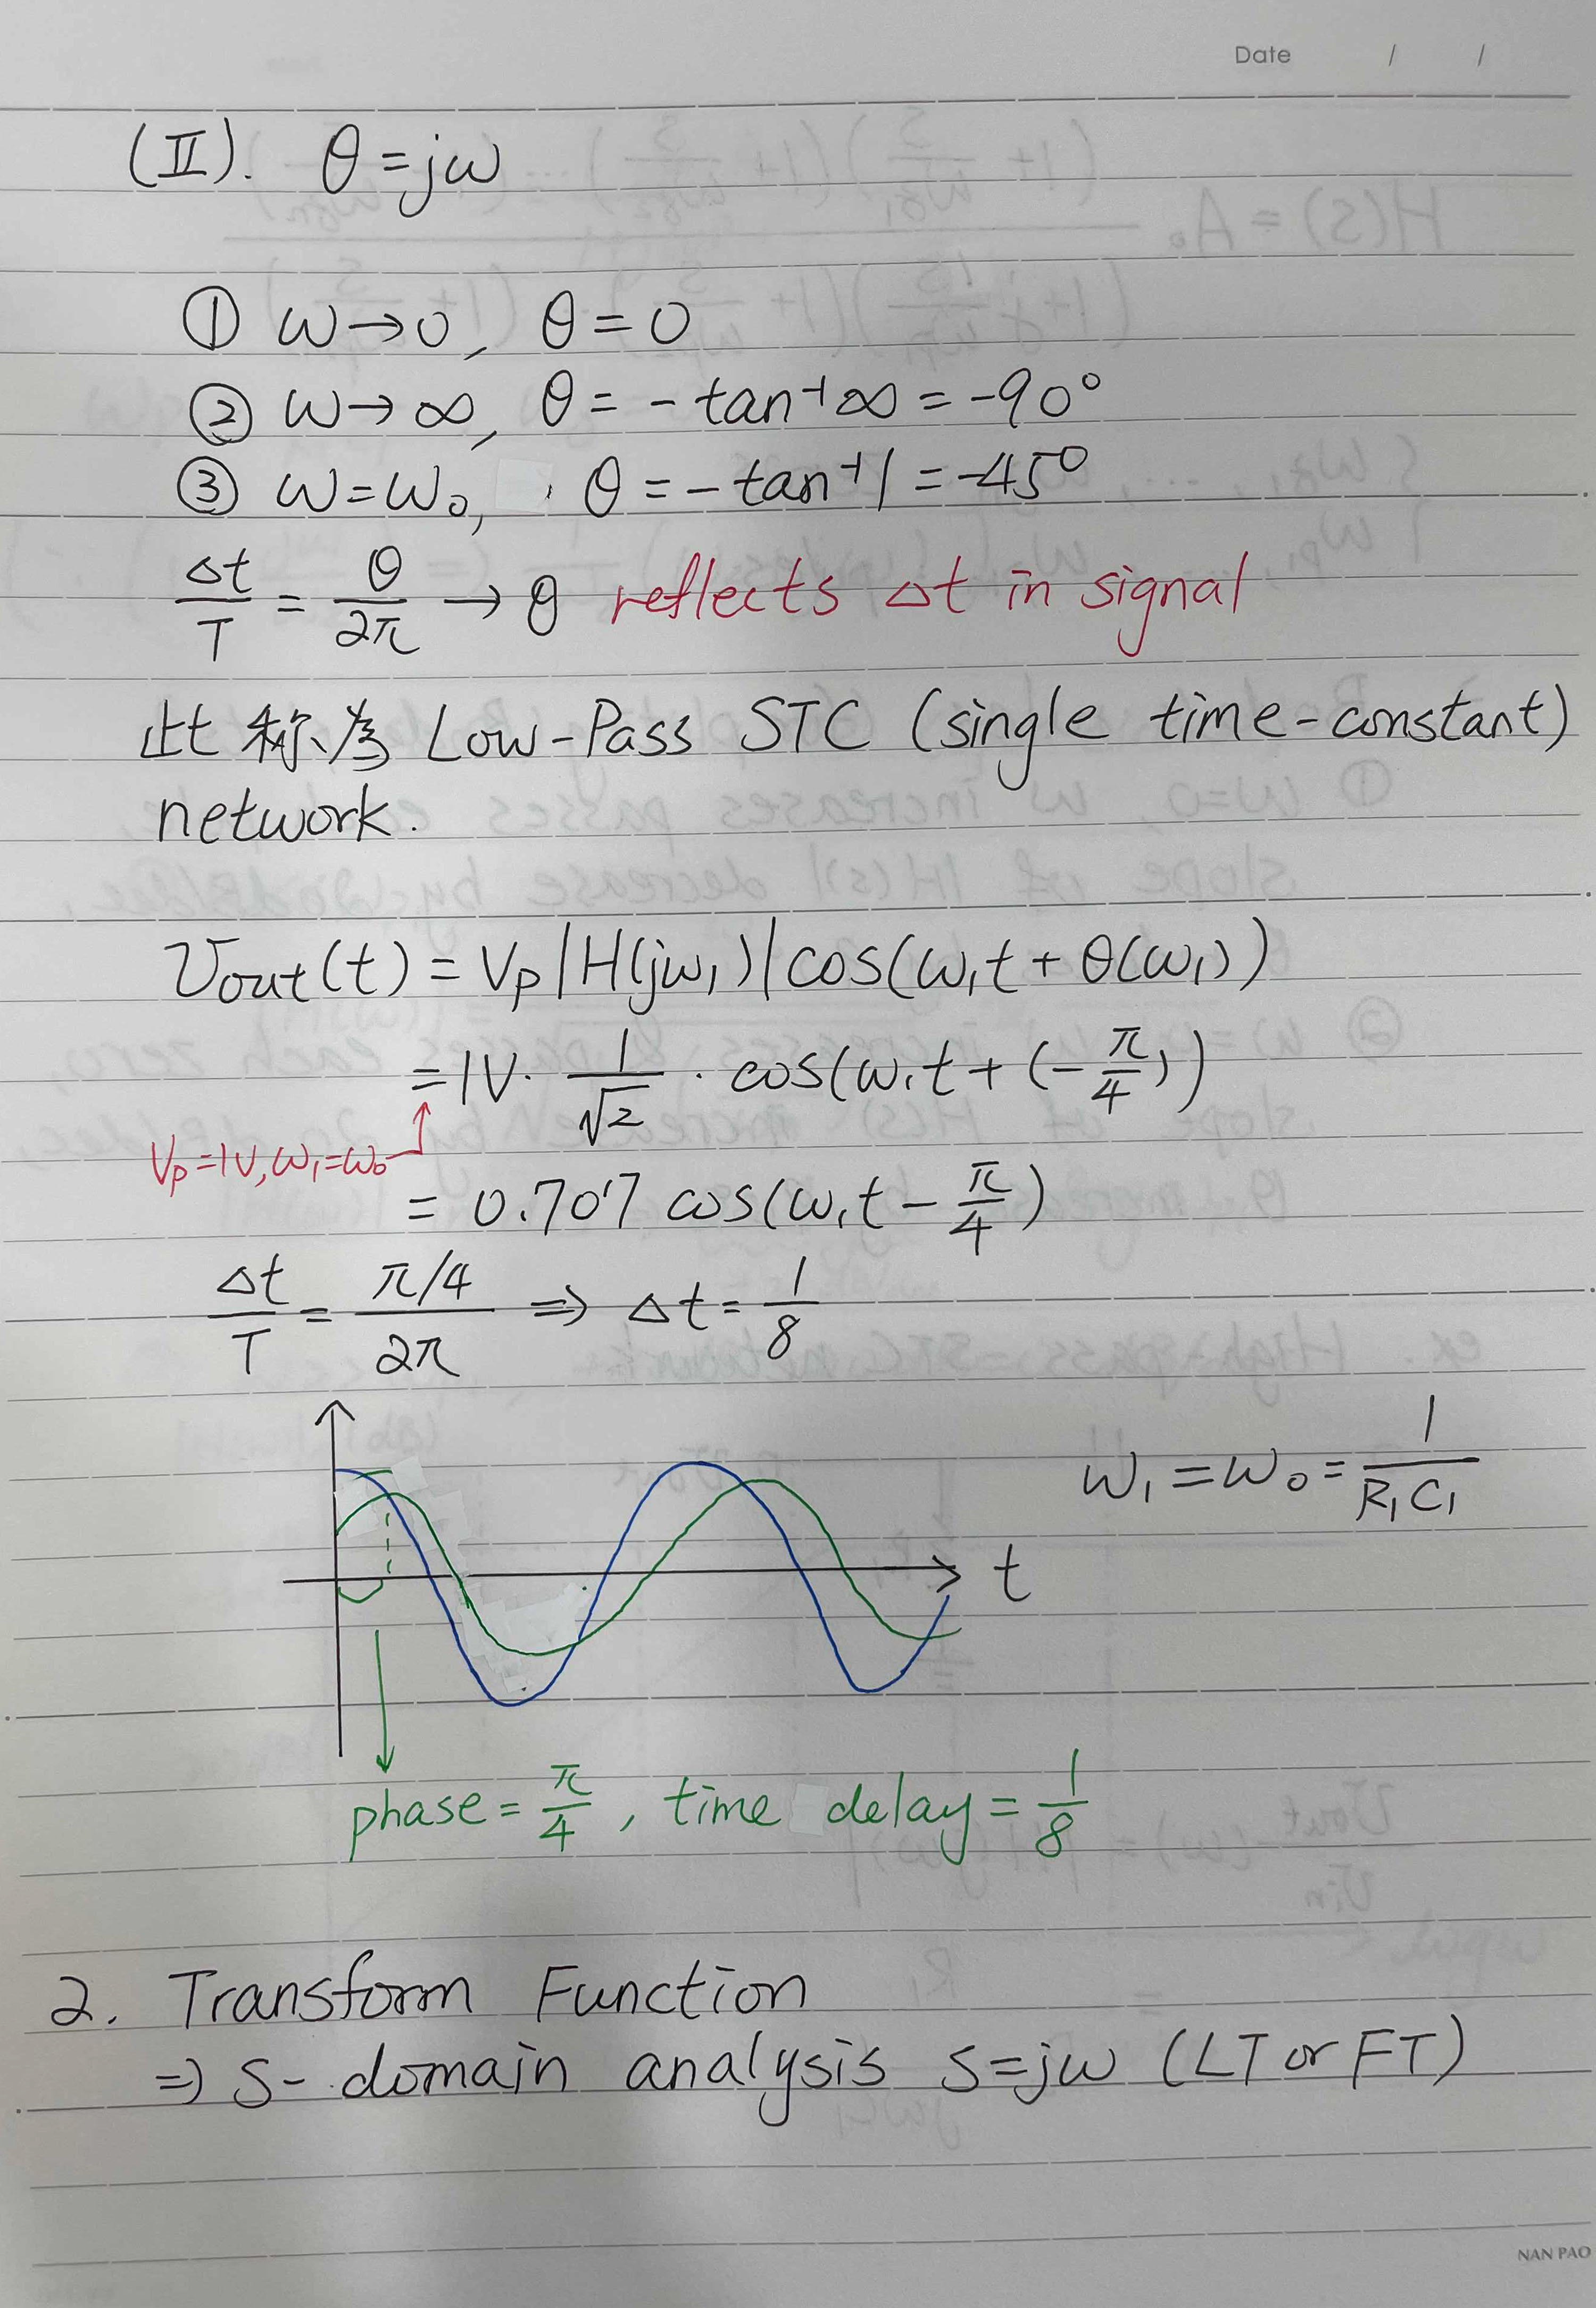 Date / /
(II). θ = jω
① ω→0, θ = 0
② ω→∞, θ = -tan⁻¹∞ = -90°
③ ω=ω₀, θ = -tan⁻¹1 = -45°
Δt/T = θ/2π → θ reflects Δt in signal
此称為 Low-Pass STC (single time-constant)
network.
Vout(t) = Vp|H(jω₁)|cos(ω₁t + θ(ω₁))
= 1V · 1/√2 · cos(ω₁t + (-π/4))
Vp=1V, ω₁=ω₀
= 0.707 cos(ω₁t - π/4)
Δt/T = (π/4)/2π ⇒ Δt = 1/8
ω₁ = ω₀ = 1/R₁C₁
t
phase = π/4, time delay = 1/8
2. Transform Function
⇒ S-domain analysis S=jω (LT or FT)
NAN PAO